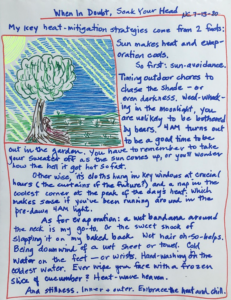 When In Doubt, Soak Your Head
7-13-20
My key heat-mitigation strategies come from 2 facts:
Sun makes heat and evap-
oration cools.
So first: sun-avoidance.
Timing outdoor chores to
chase the shade - or
even darkness. Weed-whack-
ing in the moonlight, you
are unlikely to be bothered
by bears. 4AM turns out
to be a good time to be
out in the garden. You have to remember to take
your sweater off as the sun comes up, or you'll wonder
how the hell it got hot so fast.
Other wise, it's cloths hung in key windows at crucial
hours (the curtains of the future) and a nap in the
coolest corner at the peak of the day's heat, which
makes sense if you've been running around in the
pre-dawn 4AM light.
As for evaporation: a wet bandana around
the neck is my go-to. Or the sweet shock of
slapping it on my baked back. Wet hair also helps.
Being downwind of a wet sheet or towel. Cold
water on the feet - or wrists. Hand-washing in the
coldest water. Ever wipe your face with a frozen
slice of cucumber? Heat-wave heaven.
And stillness. Inner & outer. Embrace the heat and chill.